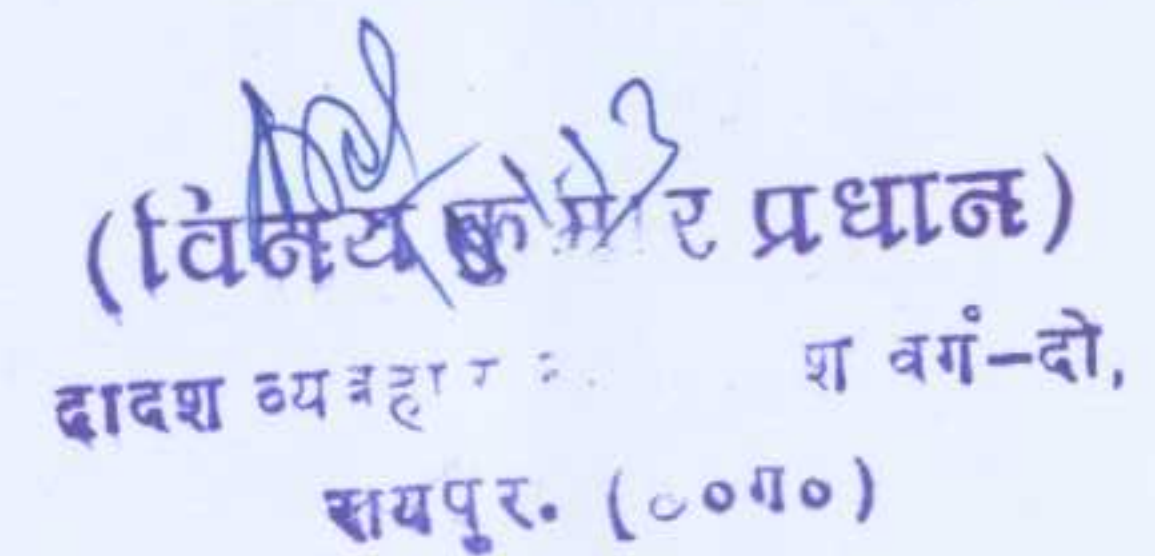 (विनय कुमार प्रधान)
द्वादश व्यवहार श वर्ग-दो,
रायपुर. (००ग०)